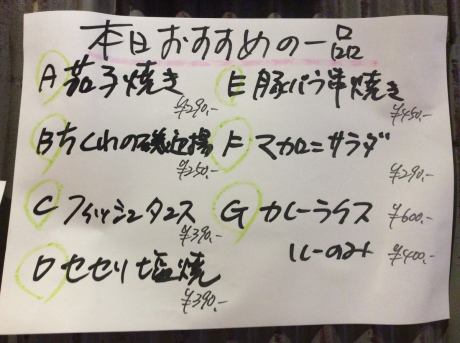 本日おすすめの一品
A 茄子焼き
¥290.-
B ちくわの磯辺揚
¥250.-
C フィッシュタコス
¥390.-
D セセリ塩焼
¥390.-
E 豚バラ串焼き
¥450.-
F マカロニサラダ
¥290.-
G カレーライス ¥600.-
ルーのみ ¥400.-